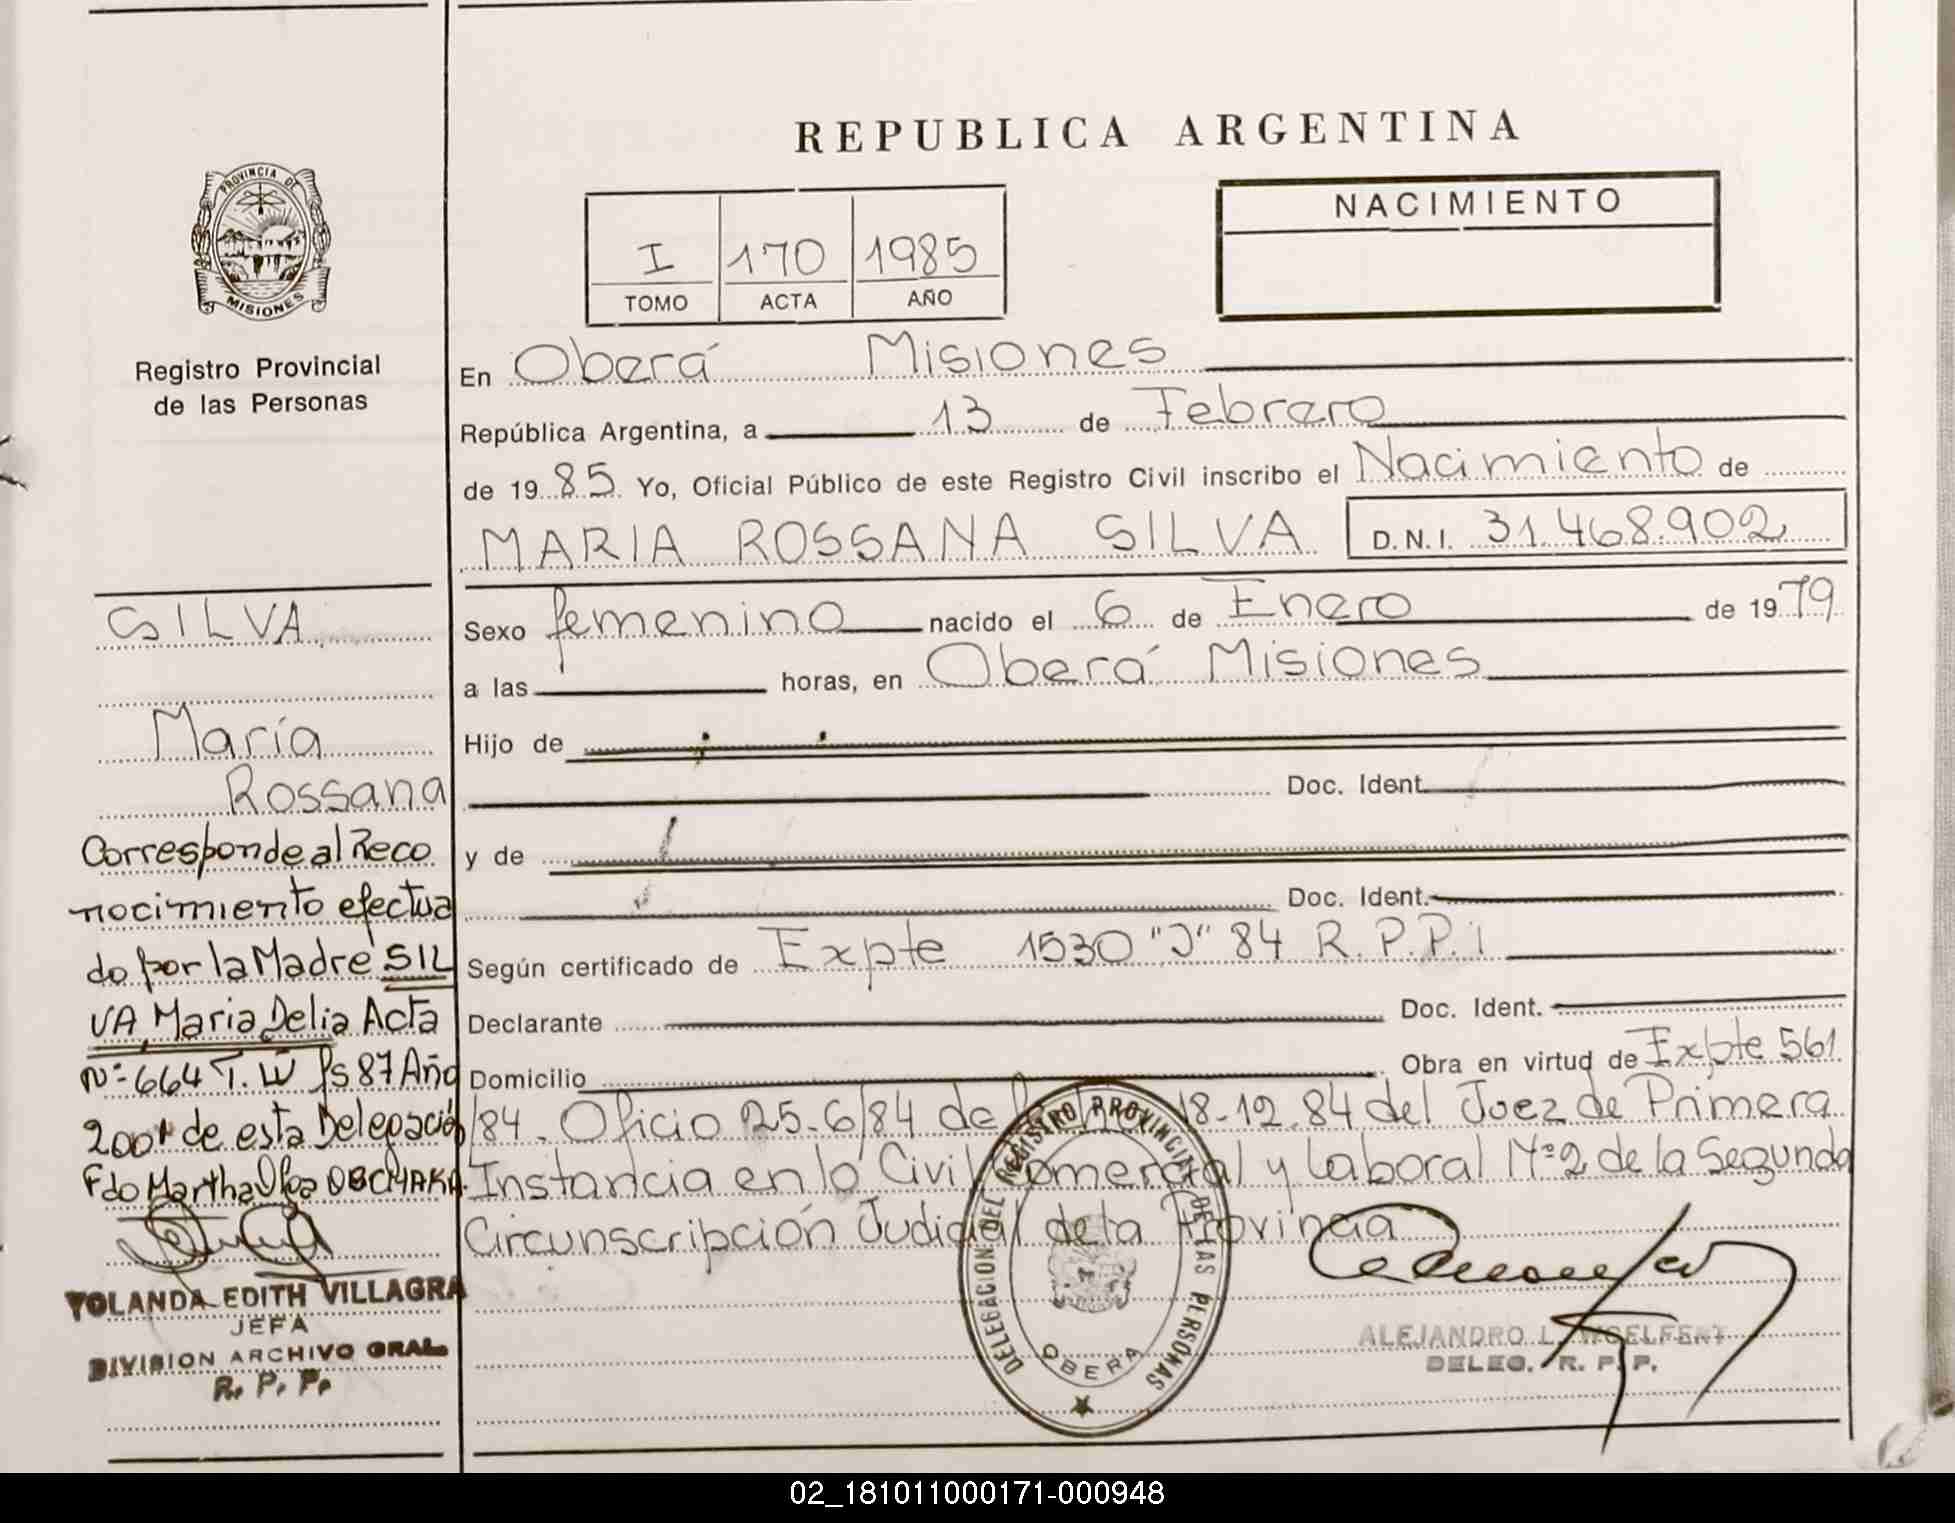 REPUBLICA ARGENTINA
PROVINCIA DE
MISIONES
Registro Provincial
de las Personas
I 170 1985
TOMO ACTA AÑO
NACIMIENTO
En Oberá Misiones
República Argentina, a 13 de Febrero
de 1985 Yo, Oficial Público de este Registro Civil inscribo el Nacimiento de
MARIA ROSSANA SILVA D.N.I. 31.468.902
Sexo femenino nacido el 6 de Enero de 1979
a las horas, en Oberá Misiones
Hijo de
Doc. Ident.
y de
Doc. Ident.
Según certificado de Expte 1530 "J" 84 R.P.P.
Declarante Doc. Ident.
Domicilio Obra en virtud de Expte 561
/84. Oficio 25-6/84 de 18-12-84 del Juez de Primera
Instancia en lo Civil Comercial y Laboral Nº2 de la Segunda
Circunscripción Judicial de la Provincia
SILVA
María
Rossana
Corresponde al Reco
nocimiento efectua
do por la Madre SIL
VA Maria Delia Acta
Nº 664 T. Fs 87 Año
2001 de esta Delegación
Fdo Martha Olga
YOLANDA EDITH VILLAGRA
JEFA
DIVISION ARCHIVO GRAL.
R. P. P.
DELEGACION DEL REGISTRO PROVINCIAL DE LAS PERSONAS
OBERA
ALEJANDRO L. WOELFERT
DELEG. R. P. P.
02_181011000171-000948